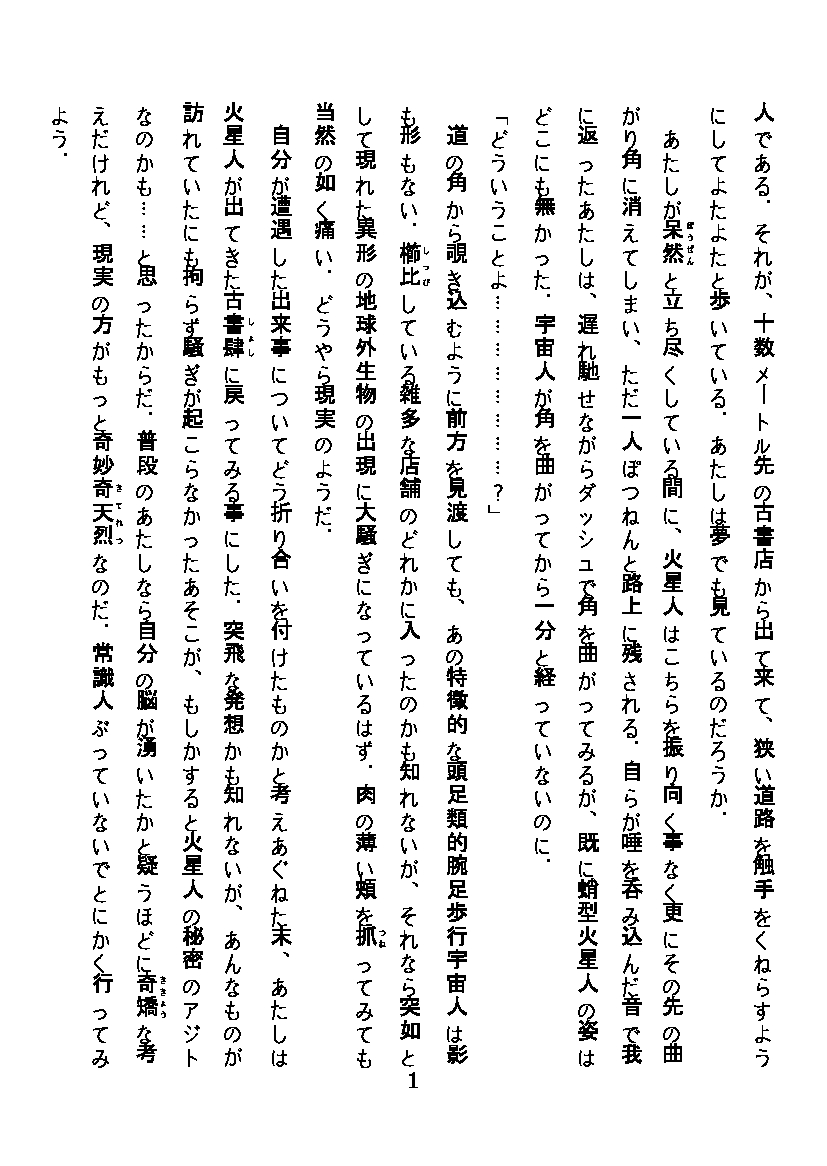 人である．それが、十数メートル先の古書店から出て来て、狭い道路を触手をくねらすよう
にしてよたよたと歩いている．あたしは夢でも見ているのだろうか．
　あたしが呆然と立ち尽くしている間に、火星人はこちらを振り向く事なく更にその先の曲
がり角に消えてしまい、ただ一人ぽつねんと路上に残される．自らが唾を呑み込んだ音で我
に返ったあたしは、遅れ馳せながらダッシュで角を曲がってみるが、既に蛸型火星人の姿は
どこにも無かった．宇宙人が角を曲がってから一分と経っていないのに．
「どういうことよ……………………？」
　道の角から覗き込むように前方を見渡しても、あの特徴的な頭足類的腕足歩行宇宙人は影
も形もない．櫛比している雑多な店舗のどれかに入ったのかも知れないが、それなら突如と
して現れた異形の地球外生物の出現に大騒ぎになっているはず．肉の薄い頬を抓ってみても
当然の如く痛い．どうやら現実のようだ．
　自分が遭遇した出来事についてどう折り合いを付けたものかと考えあぐねた末、あたしは
火星人が出てきた古書肆に戻ってみる事にした．突飛な発想かも知れないが、あんなものが
訪れていたにも拘らず騒ぎが起こらなかったあそこが、もしかすると火星人の秘密のアジト
なのかも……と思ったからだ．普段のあたしなら自分の脳が湧いたかと疑うほどに奇矯な考
えだけれど、現実の方がもっと奇妙奇天烈なのだ．常識人ぶっていないでとにかく行ってみ
よう．
1